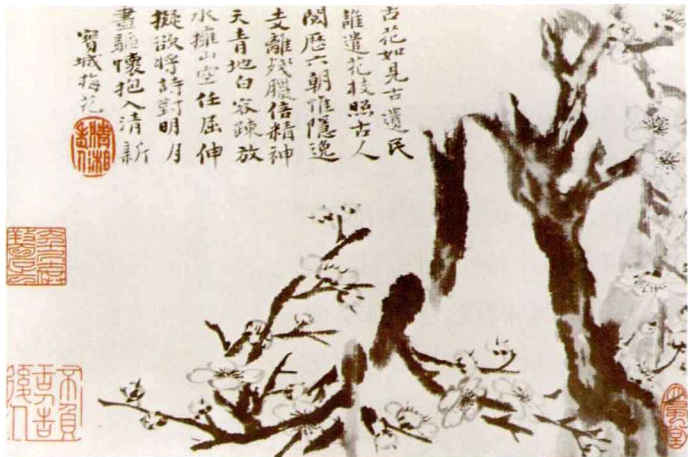 古花如見古遺民
誰遣花枝照古人
閱歷六朝惟隱逸
支離殘臘倍精神
天青地白容疎放
水擁山空任屈伸
擬欲將詩對明月
盡驅懷抱入清新
寶城梅花